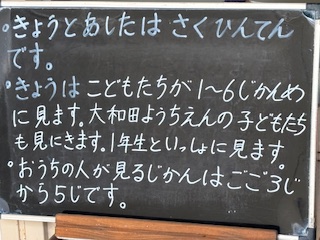 ・きょうとあしたは さくひんてん
です。
・きょうは こどもたちが 1〜6じかんめ
に見ます。大和田ようちえんの子どもたち
も見にきます。1年生といっしょに見ます。
・おうちの人が見るじかんはごご3じ
から5じです。